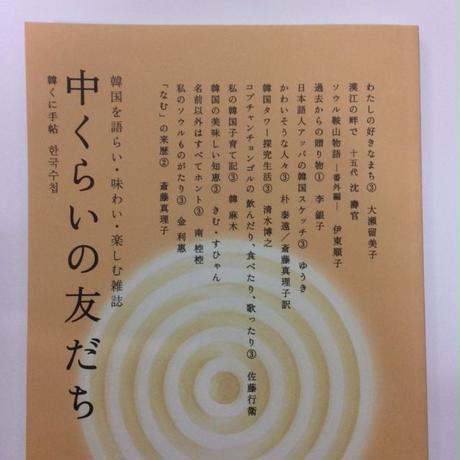 わたしの好きなまち③ 大瀬留美子
漢江の畔で 十五代 沈壽官
ソウル鞍山物語―番外編― 伊東順子
過去からの贈り物① 李銀子
日本語人アッパの韓国スケッチ③ ゆうき
かわいそうな人々③ 朴泰遠/斎藤真理子訳
韓国タワー探究生活③ 清水博之
コプチャンチョンゴルの 飲んだり、食べたり、歌ったり③ 佐藤行衛
私の韓国子育て記③ 韓麻木
韓国の美味しい知恵③ きむ・すひゃん
名前以外はすべてホント③ 南椌椌
私のソウルものがたり③ 金利惠
「なむ」の来歴② 斎藤真理子
韓国を語らい・味わい・楽しむ雑誌
中くらいの友だち
韓くに手帖 한국수첩